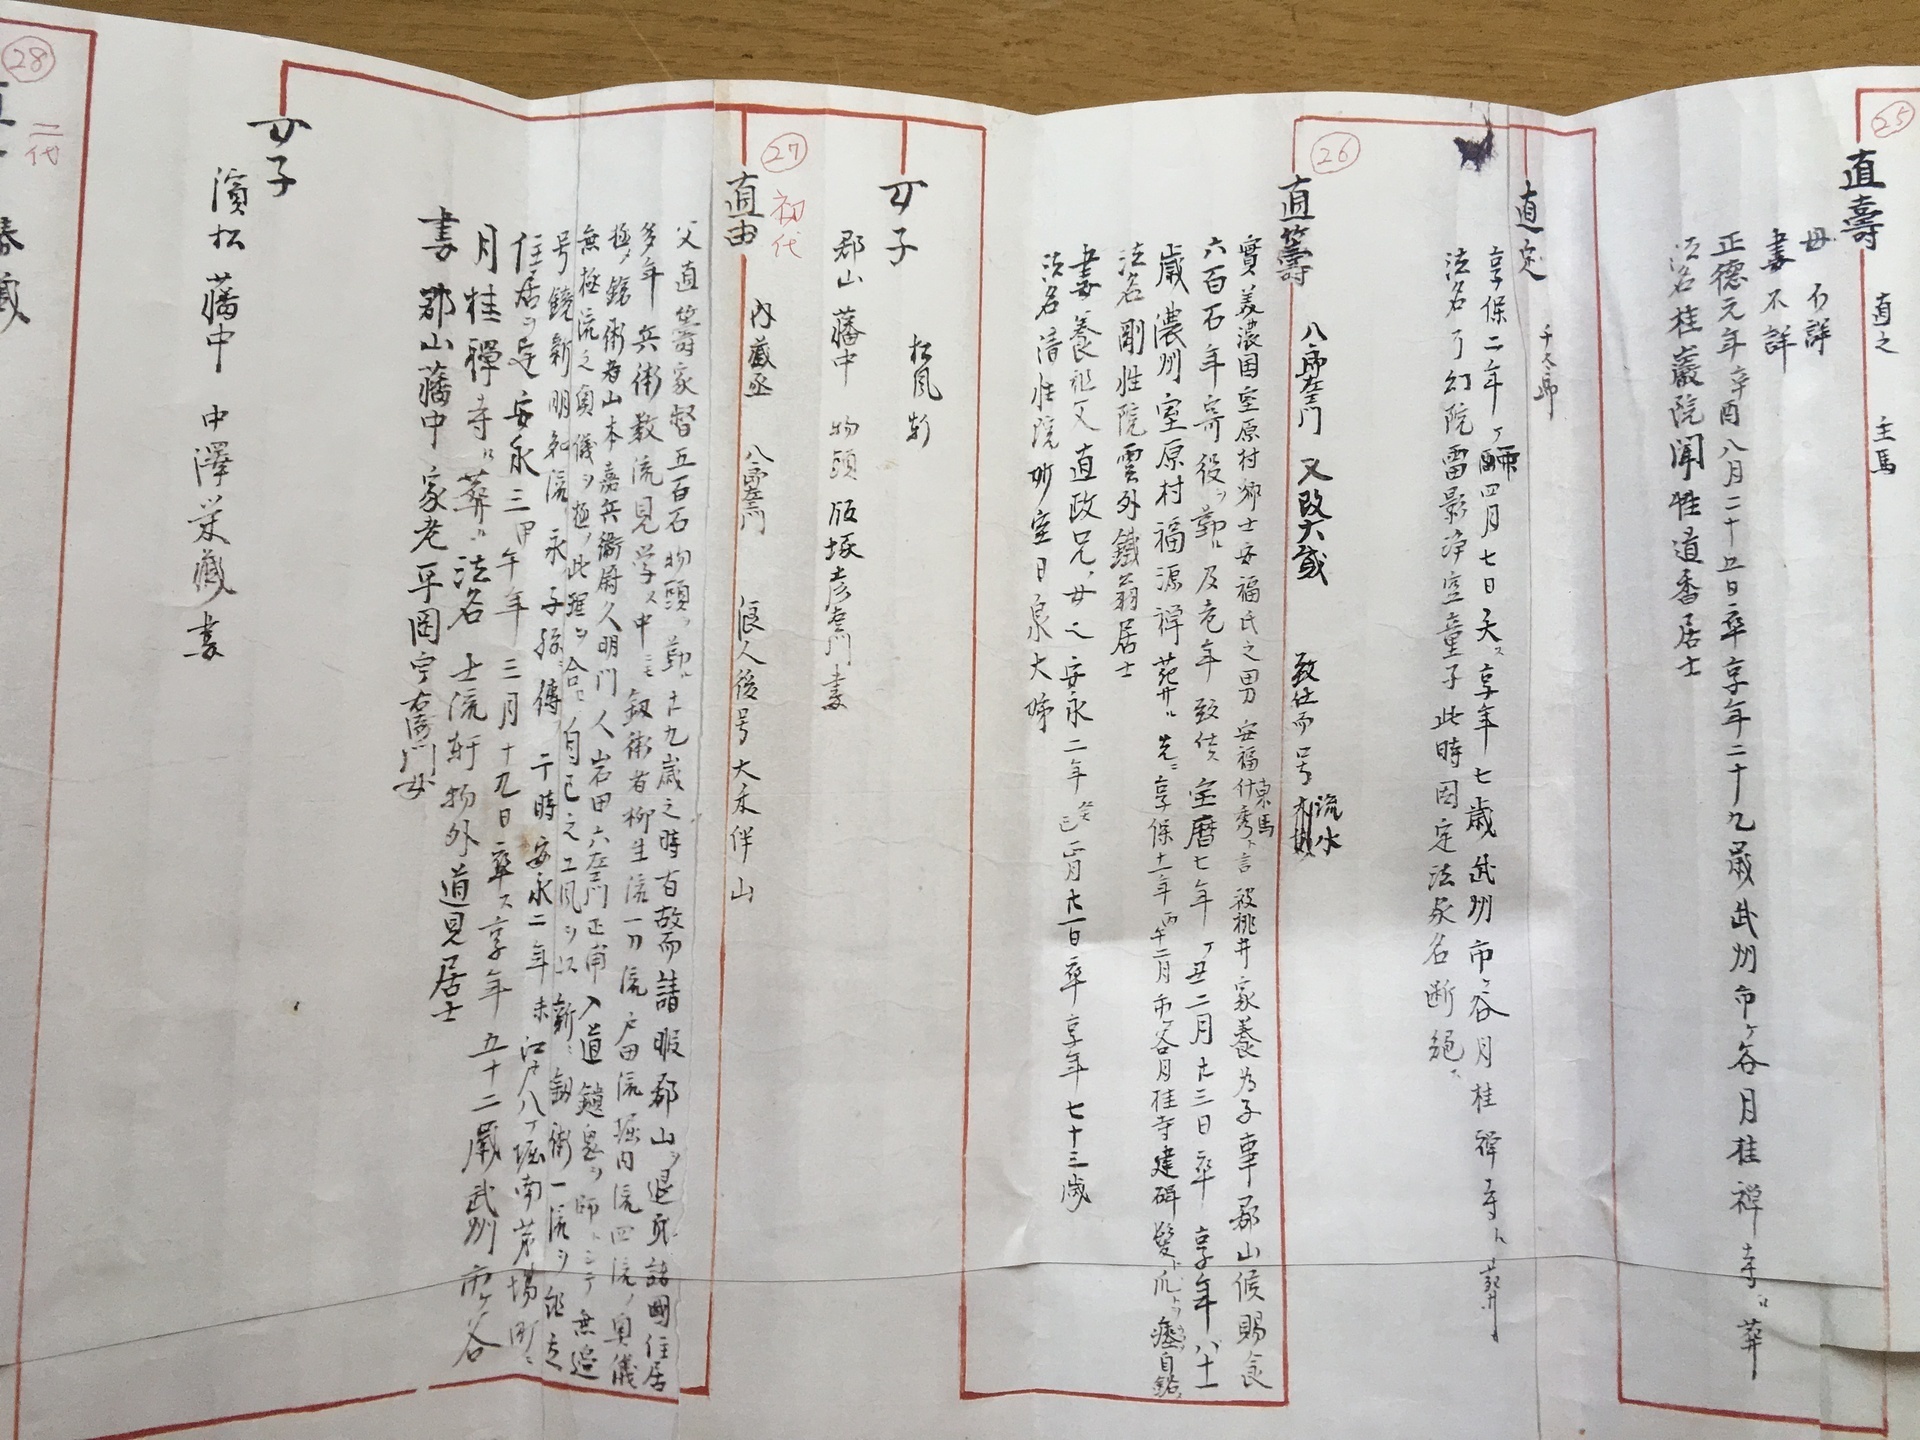 ㉕
直壽
直之 主馬
母 不詳
妻 不詳
正德元年辛酉八月二十五日卒享年二十九歳武州市ヶ谷月桂禅寺ニ葬
法名桂巖院聞性道香居士
直定
千太郎
享保二年丁酉四月七日夭ス享年七歳武州市ヶ谷月桂禅寺ニ葬
法名了幻院雷影浄空童子此時因定法永名断絶ス
㉖
直籌 八郎左衛門 又改大蔵 致仕而号流水
實美濃国室原村郷士安福氏之男安福 東馬 秀ト言被桃井家養為子事郡山候賜食
六百石年寄役ヲ勤ム及老年致仕宝暦七年丁丑二月廿三日卒享年八十一
歳濃州室原村福源禅 葬ニ先ニ享保十一年丙午二月市ヶ谷月桂寺建碑髪ト爪トヲ瘞自銘
法名剛性院雲外鐵翁居士
妻養祖父直政兄女之安永二年癸巳正月廿一日卒享年七十三歳
法名清性院妙室日泉大姉
女子 松風軒
郡山藩中 物頭 版塚彦左衛門妻
㉗
初代
直由 内蔵丞 八郎左衛門 浪人後号大禾伴山
父直籌家督五百石物頭ヲ勤ム廿九歳之時有故而請暇郡山ヲ退身諸國住居
多年兵術数流見学ス中ニモ釼術者柳生流一刀流戸田流堀内流四流ノ奥儀
極メ鎗術者山本嘉兵衛尉久明門人岩田六左衛門正甫入道鎮鬼ヲ師トシテ無邊
無極流之奥儀ヲ極ノ此理ヲ合ニ自己之工風ヲ以新ニ釼術一流ヲ能立
号鏡新明智流永ク子孫ニ傳 于時安永二年未江戸八丁堀南茅場町ニ
住居ヲ定安永三甲午年三月十九日卒ス享年五十二歳武州市ヶ谷
月桂禅寺ニ葬ニ法名 士流軒物外道見居士
妻郡山藩中家老平岡宇右衛門女
女子
濱松藩中 中澤栄藏妻
㉘
二代